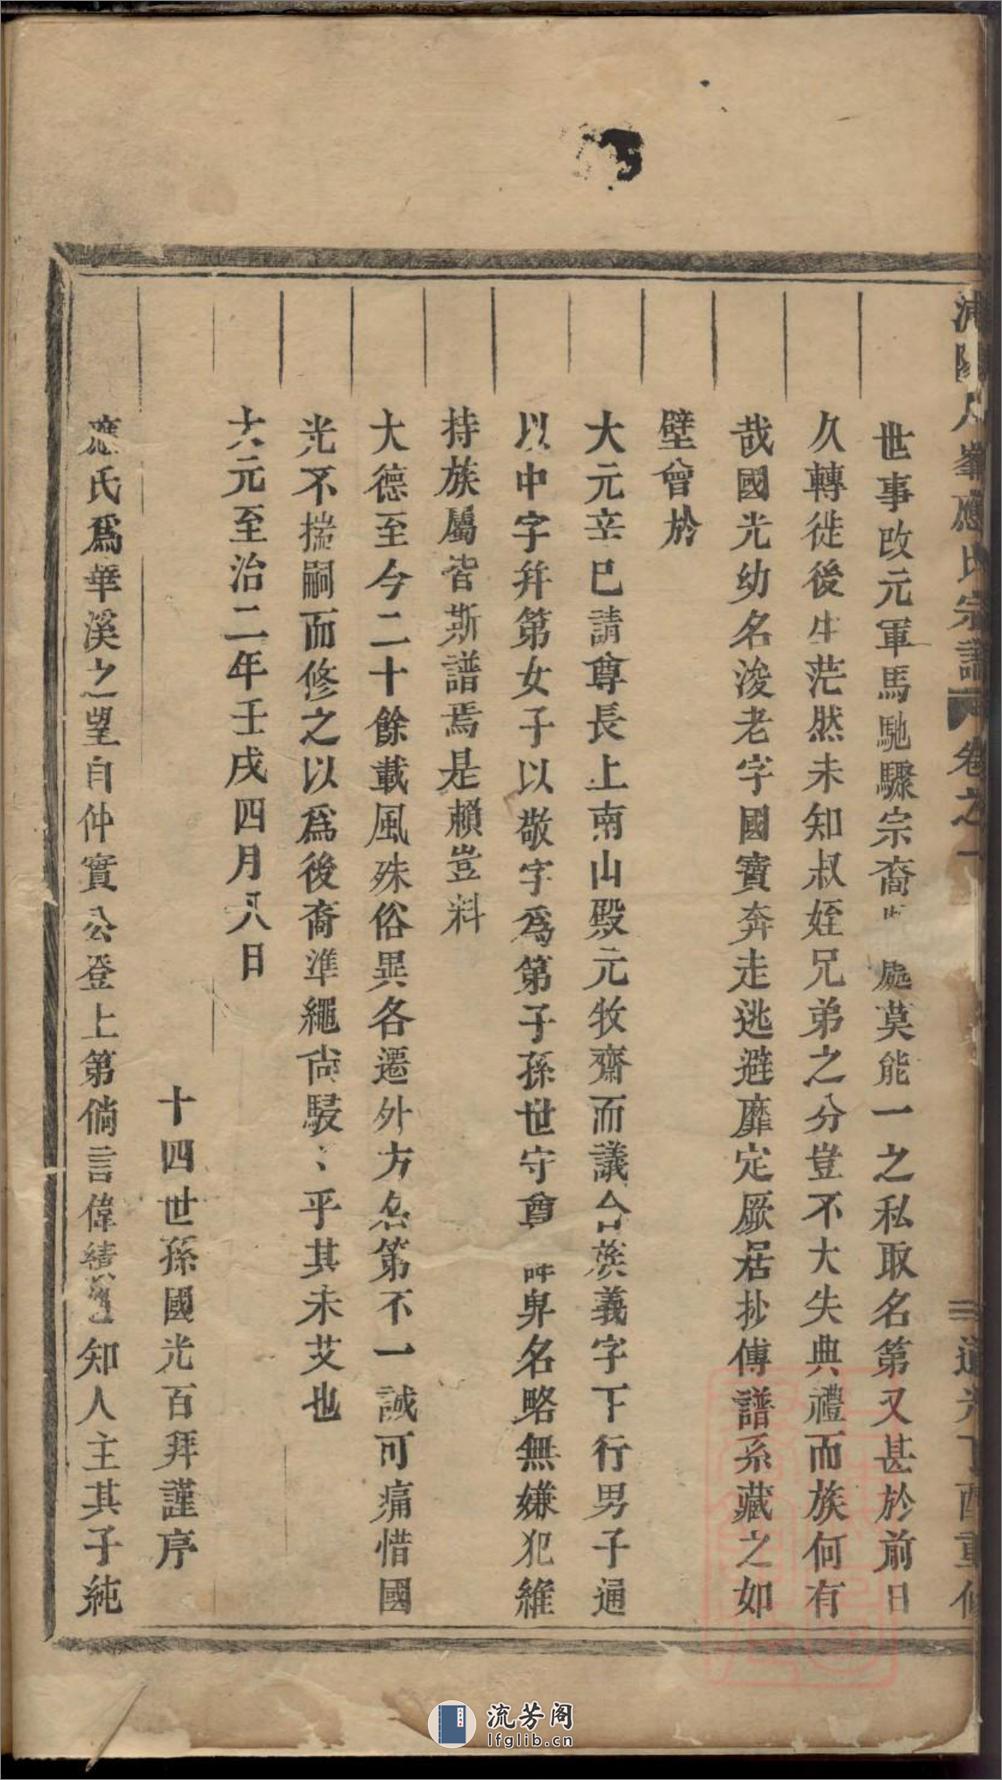 應氏宗譜 卷之一 三 道光丁酉重修
世事改元軍馬馳驟宗裔 處莫能一之私取名第又甚於前日
久轉徙後生茫然未知叔姪兄弟之分豈不大失典禮而族何有
哉國光幼名浚老字國寶奔走逃避靡定厥居抄傳譜系藏之如
壁曾於
大元辛巳請尊長上南山殿元牧齋而議合族義字下行男子通
以中字幷第女子以敬字爲第子孫世守尊 卑名略無嫌犯維
持族屬皆斯譜焉是賴豈料
大德至今二十餘載風殊俗異各遷外方名第不一誠可痛惜國
光不揣嗣而修之以爲後裔準繩尙駸〻乎其未艾也
大元至治二年壬戌四月八日
十四世孫國光百拜謹序
應氏爲華溪之望自仲實公登上第倘言偉績 知人主其子純
流芳阁
lfglib.cn